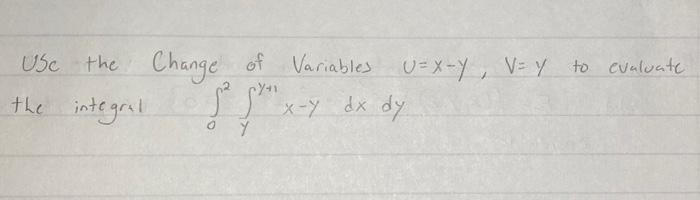 USe the Change of Variables U=x-y, V=y to evaluate
the integral ∫₀² ∫_y^{y+1} x-y dx dy